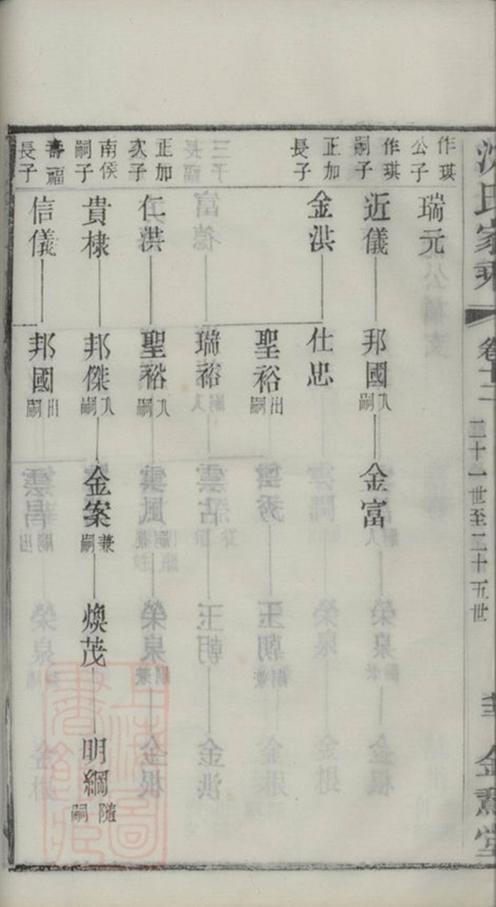 沈氏家乘 卷十二 三十一世至三十五世 金鵞堂
作琪公子 瑞元
作琪嗣子 近儀 邦國入嗣 金富
正加長子 金洪 仕忠
聖裕出嗣
瑞裕
正加次子 仁洪 聖裕入嗣
南侯嗣子 貴棣 邦傑入嗣 金案兼嗣 煥茂 明綱隨嗣
壽福長子 信儀 邦國出嗣